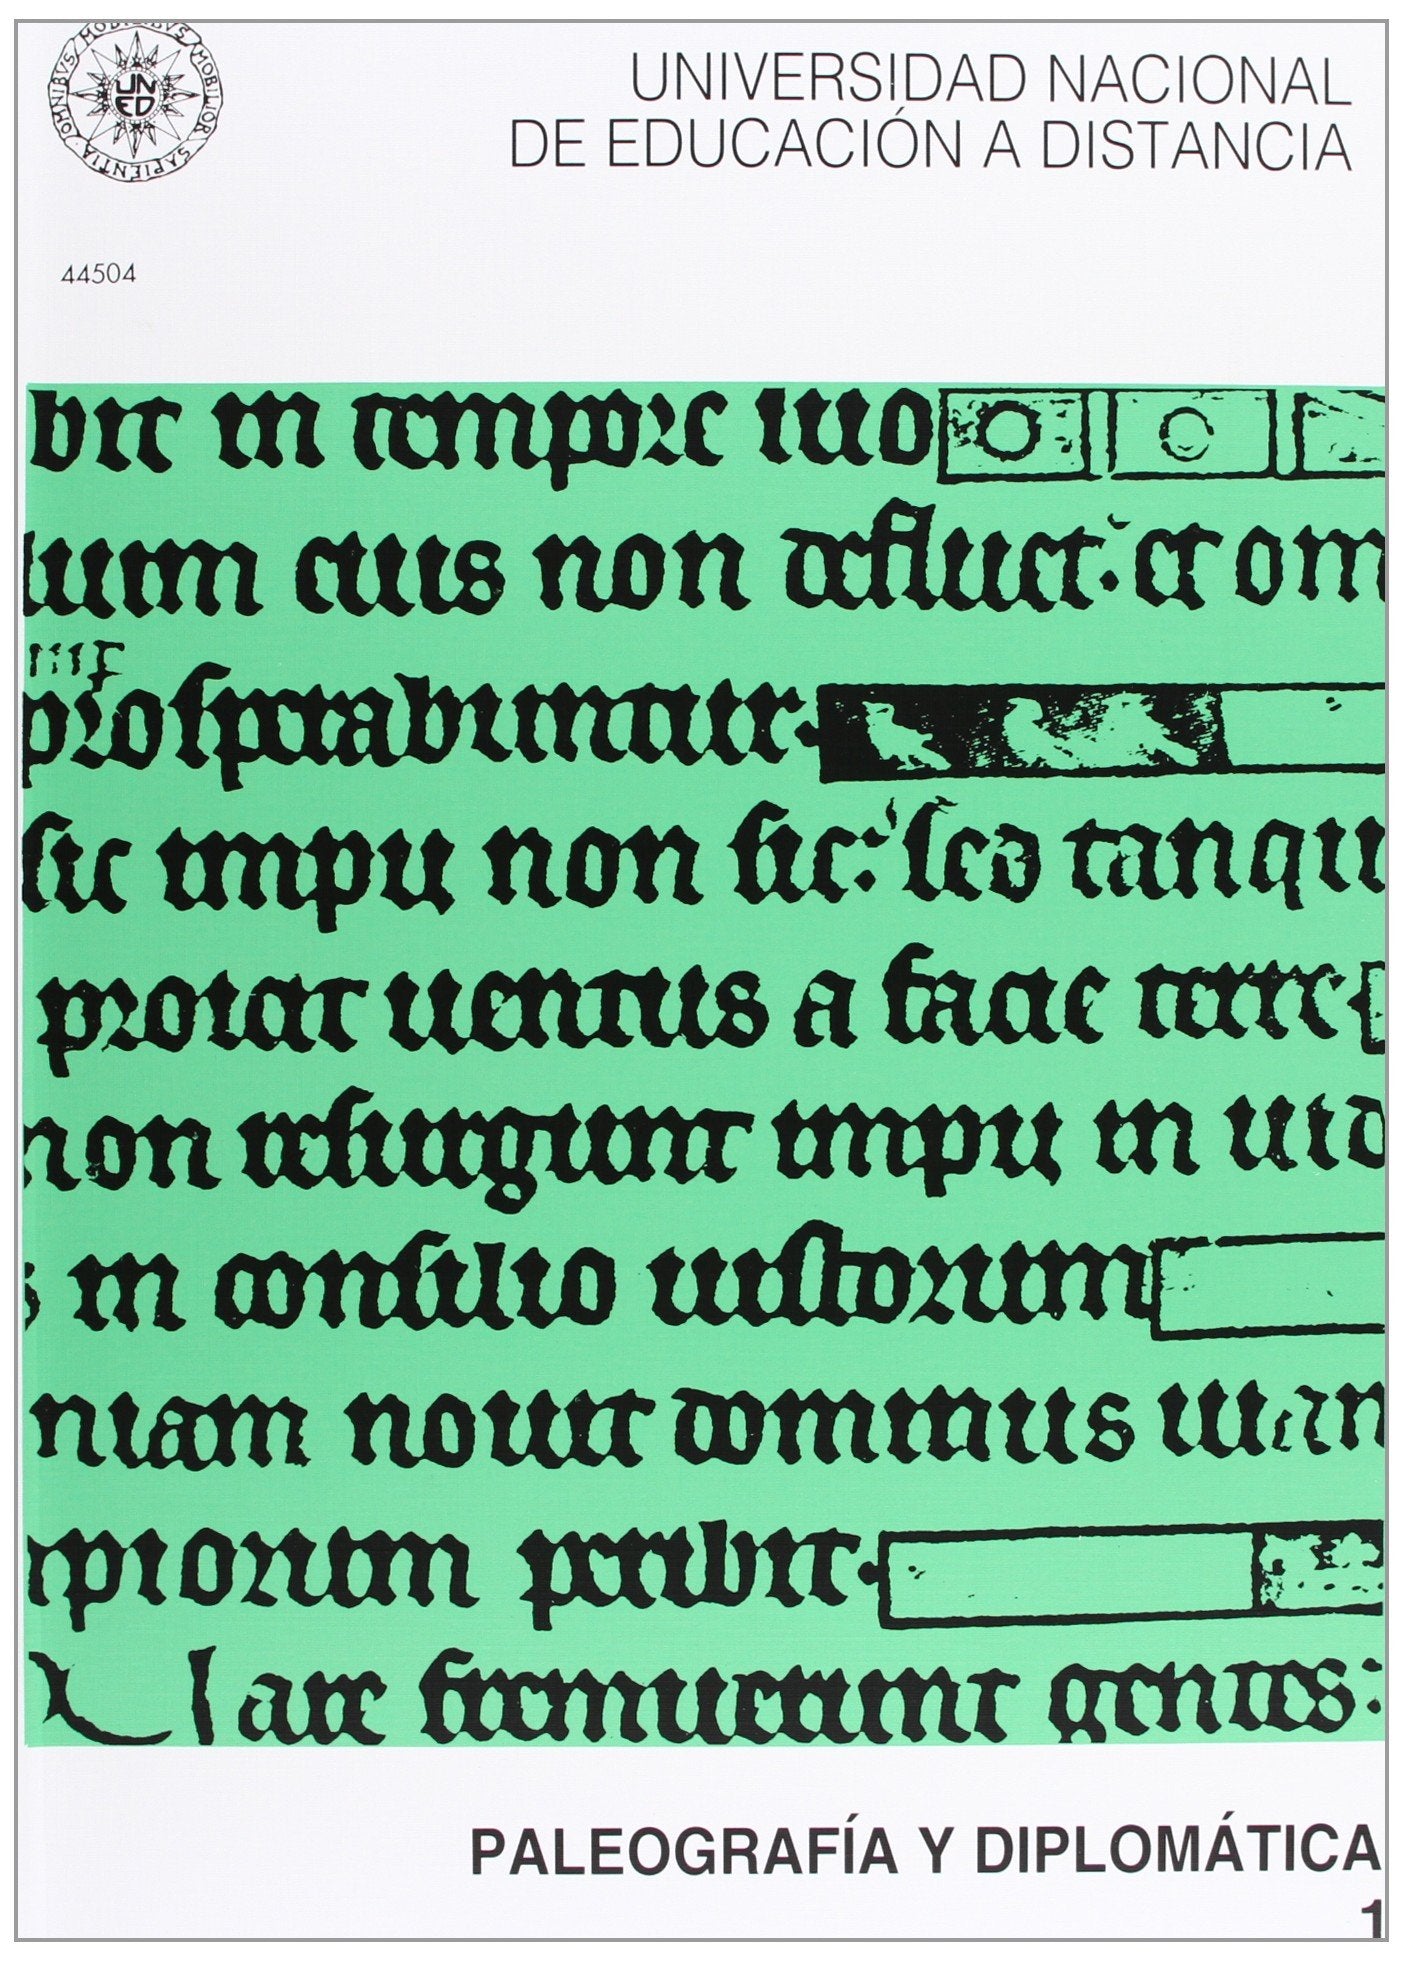 OMNIBVS MOBILIBVS MOBILIOR SAPIENTIA
UN
ED
UNIVERSIDAD NACIONAL
DE EDUCACIÓN A DISTANCIA
44504
bit in tempore suo
lium eius non defluet. et om
prosperabuntur.
sic impii non sic: sed tanqu
proicit uentus a facie terre
non resurgunt impii in iud
s in consilio iustorum
niam nouit dominus uian
mpiorum peribit.
are fremuerunt gentes:
PALEOGRAFÍA Y DIPLOMÁTICA
1